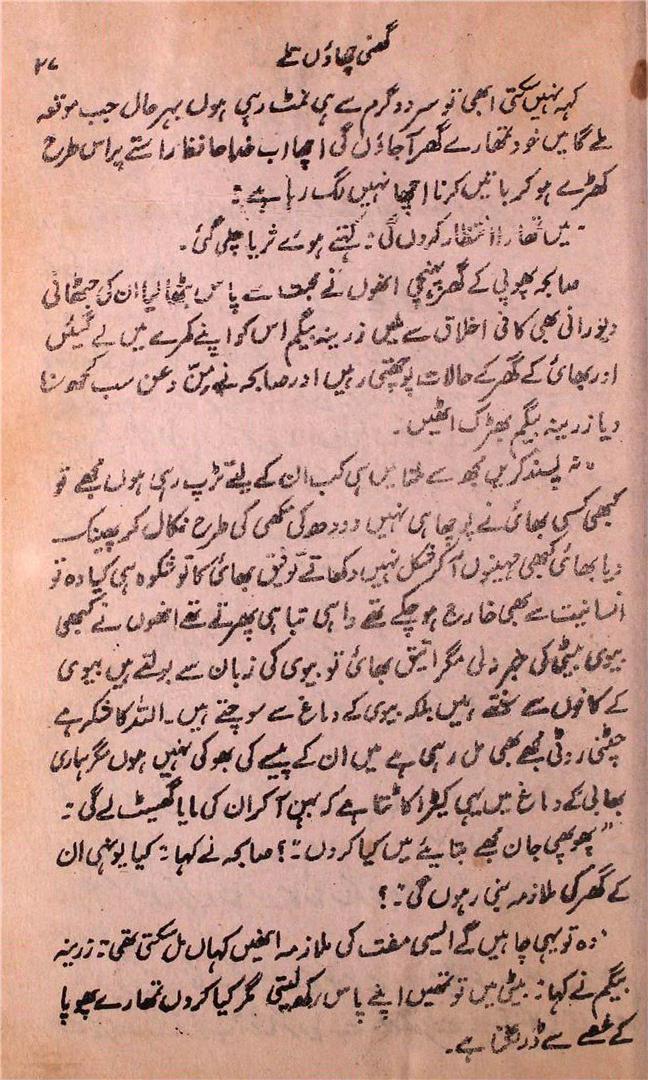 گھنی چھاؤں تلے
۲۷
کہہ نہیں سکتی ابھی تو سرد و گرم سے ہی نمٹ رہی ہوں بہر حال جب موقعہ
ملے گا میں خود تمھارے گھر آ جاؤں گی اچھا اب خدا حافظ راستے پر اس طرح
کھڑے ہو کر باتیں کرنا اچھا نہیں لگ رہا ہے ۔"
"میں تمھارا انتظار کروں گی ۔" کہتے ہوئے ثریا چلی گئی ۔
صابحہ پھوپی کے گھر پہنچی انھوں نے محبت سے پاس بٹھا لیا ان کی جیٹھانی
دیورانی بھی کافی اخلاق سے ملیں زرینہ بیگم اس کو اپنے کمرے میں لے گئیں
اور بھائی کے گھر کے حالات پوچھتی رہیں اور صابحہ نے من و عن سب کچھ سنا
دیا زرینہ بیگم بھڑک اٹھیں ۔
"نہ پسند کریں مجھ سے ملنا میں ہی کب ان کے لئے تڑپ رہی ہوں مجھے تو
کبھی کسی بھائی نے پوچھا ہی نہیں دودھ کی مکھی کی طرح نکال کر پھینک
دیا بھائی کبھی مہینوں آ کر شکل نہیں دکھاتے توفیق بھائی کا تو شکوہ ہی کیا وہ تو
انسانیت سے بھی خارج ہو چکے تھے واہی تباہی پھرتے تھے انھوں نے کبھی
بیوی بیٹی کی خبر نہ لی مگر انیق بھائی تو بیوی کی زبان سے بولتے ہیں بیوی
کے کانوں سے سنتے ہیں بلکہ بیوی کے دماغ سے سوچتے ہیں ۔ اللہ کا شکر ہے
چٹنی روٹی مجھے بھی مل رہی ہے میں ان کے پیسے کی بھوکی نہیں ہوں مگر ہماری
بھابی کے دماغ میں یہی کیڑا کاٹتا ہے کہ بہن آ کر ان کی مایا گھسیٹ لے گی ۔"
"پھوپھی جان مجھے بتایئے میں کیا کروں ۔"؟ صابحہ نے کہا ۔" کیا یونہی ان
کے گھر کی ملازمہ بنی رہوں گی ۔"؟
"وہ تو یہی چاہیں گے ایسی مفت کی ملازمہ انھیں کہاں مل سکتی تھی ۔" زرینہ
بیگم نے کہا ۔" بیٹی میں تو تمھیں اپنے پاس رکھ لیتی مگر کیا کروں تمھارے پھوپا
کے غصے سے ڈر لگتا ہے ۔